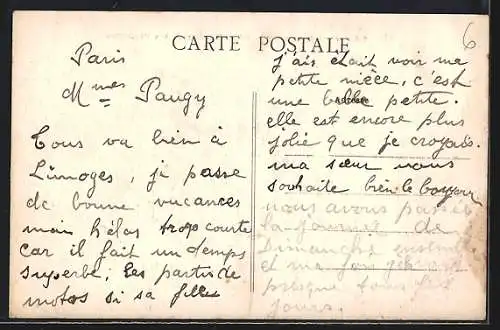 CARTE POSTALE
6
Paris
Mmes Paugy
Tous va bien à
Limoges, je passe
de bonne vacances
mais hélas trop courte
car il fait un temps
superbe, les partis de
motos si sa
j'ais était voir ma
petite nièce, c'est
une belle petite.
elle est encore plus
jolie que je croyais.
ma sœur vous
souhaite bien le bonjour
nous avons passée
la journée de
Dimanche ensemble
et ma
presque tous les
jours.